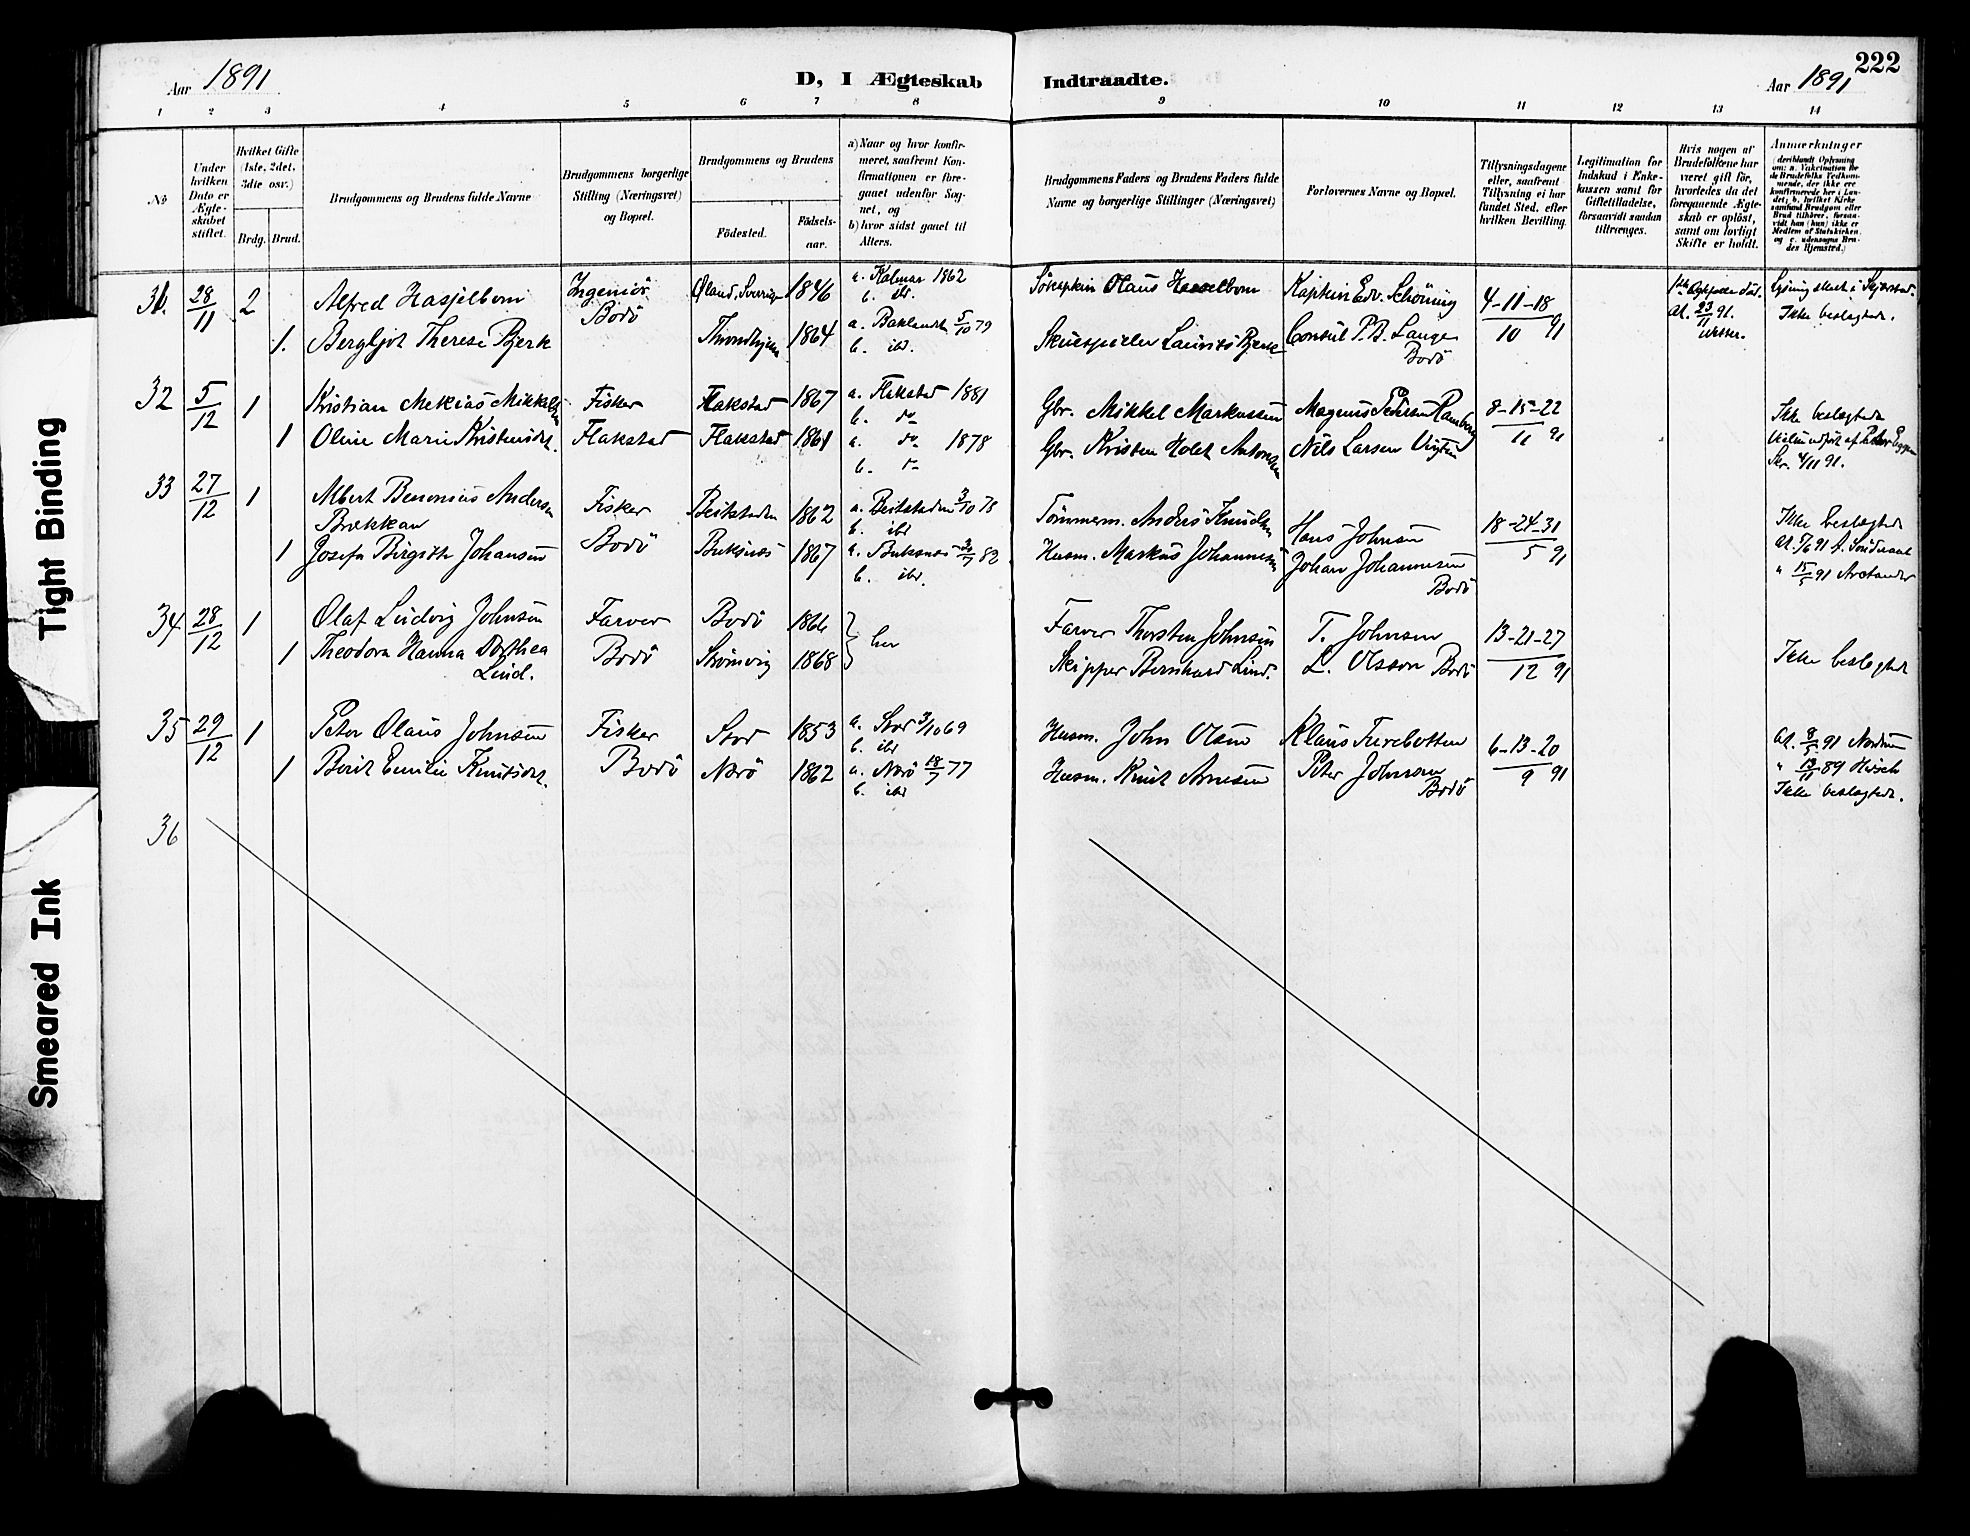 222
Aar 1891
D, I Ægteskab Indtraadte.
Aar 1891
1 2 3 4 5 6 7 8 9 10 11 12 13 14
No
Under hvilken Dato er Ægteskabet stiftet.
Hvilket Gifte (1ste, 2det, 3die osv.)
Brdg. Brud.
Brudgommens og Brudens fulde Navne
Brudgommens borgerlige Stilling (Næringsvei) og Bopæl.
Brudgommens og Brudens
Fødested.
Fødselsaar.
a) Naar og hvor konfirmeret, saafremt Konfirmationen er foregaaet udenfor Sognet, og
b) hvor sidst gaaet til Alters.
Brudgommens Faders og Brudens Faders fulde Navne og borgerlige Stillinger (Næringsvei)
Forlovernes Navne og Bopæl.
Tillysningsdagene eller, saafremt Tillysning ei har fundet Sted, efter hvilken Bevilling.
Legitimation for Indskud i Enkekassen samt for Giftetilladelse, forsaavidt saadan tiltrænges.
Hvis nogen af Brudefolkene har været gift før, hvorledes da det foregaaende Ægteskab er opløst, samt om lovligt Skifte er holdt.
Anmærkninger
31. 28/11 2 Alfred Hasselbom Ingeniør Øland, Sverige 1846 a. Kalmar 1862 Olaus Hasselbom Kaptein Edv. Schöning 4-11-18
Bodö b. ibd.
1. Bergljot Therese Bjerk Throndhjem 1864 a. Baklandet 5/10 79 Skuespiller Laurits Bjerk Consul P.B. Lange 10 91 Ikke beslægtede.
b. ibd. Bodö
32 5/12 1 Kristian Mekias Mikkelsen Fisker Flakstad 1867 a. Flakstad 1881 Gbr. Mikkel Markussen Magnus Pedersen Ramberg 8-15-22 Ikke beslægtede
b. do
1 Oline Marie Kristensdt. Flakstad Flakstad 1861 a. do 1878 Gbr. Kristen Holst Antonsen Nils Larsen 11 91
b. do
33 27/12 1 Albert Benonius Andersen Fisker Beitstaden 1862 a. Beitstaden 3/10 78 Tömmerm. Anders Knudsen Hans Johnsen 18-24-31 Ikke beslægtede
Brækkan b. ibd
1 Josefa Birgitte Johansen Bodö Buksnæs 1867 a. Buksnæs 30/7 82 Husm. Markus Johannesen Johan Johannesen 5 91 " 15/5 91 Arctander
b. ibd. Bodö
34 28/12 1 Olaf Ludvig Johnsen Farver Bodö 1866 her Farver Thorsten Johnsen T. Johnsen 13-21-27
1 Theodora Hanna Dorthea Bodö Strömvig 1868 Skipper Bernhard Lind. L. Olsson Bodö 12 91 Ikke beslægtede
Lind.
35 29/12 1 Peter Olaus Johnsen Fisker Stod 1853 a. Stod 3/10 69 Husm. John Olsen Klaus Furebotten 6-13-20 At. 8/5 91
b. ibd
1 Berit Emilie Knutsdt. Bodö Nærö 1862 a. Nærö 18/7 77 Husm. Knut Arnesen Peter Johnsen 9 91 " 13/11 89 Hirsch
b. ibd Bodö Ikke beslægtede.
36
Tight Binding
Smeared Ink